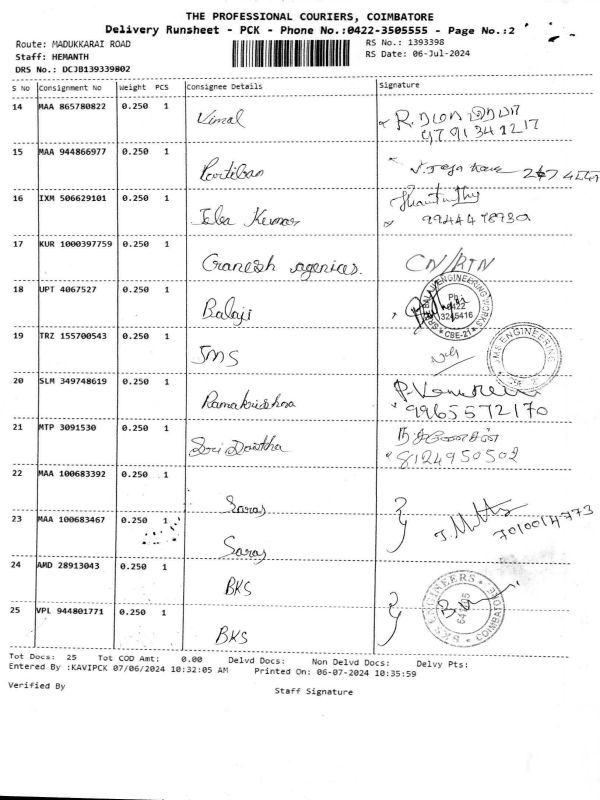 THE PROFESSIONAL COURIERS, COIMBATORE
Delivery Runsheet - PCK - Phone No.:0422-3505555 - Page No.:2
Route: MADUKKARAI ROAD
RS No.: 1393398
Staff: HEMANTH
RS Date: 06-Jul-2024
DRS No.: DCJB139339802
S No Consignment No Weight PCS Consignee Details Signature
14 MAA 865780822 0.250 1 Vimal
9791341217
15 MAA 944866977 0.250 1 Partiban
16 IXM 506629101 0.250 1 Kumar
17 KUR 1000397759 0.250 1 Ganesh agenices. CN/RTN
18 UPT 4067527 0.250 1 Balaji
SRI BALAJI ENGINEERING WORKS
Ph: 0422 3245416
CBE-21
19 TRZ 155700543 0.250 1 JMS
JMS ENGINEERING
20 SLM 349748619 0.250 1 Ramakrishna
9965572170
21 MTP 3091530 0.250 1 Sri
8124950502
22 MAA 100683392 0.250 1 Saras
23 MAA 100683467 0.250 1 Saras
7010014773
24 AMD 28913043 0.250 1 BKS
25 VPL 944801771 0.250 1 BKS
BKS ENGINEERS COIMBATORE
Tot Docs: 25 Tot COD Amt: 0.00 Delvd Docs: Non Delvd Docs: Delvy Pts:
Entered By :KAVIPCK 07/06/2024 10:32:05 AM Printed On: 06-07-2024 10:35:59
Verified By
Staff Signature